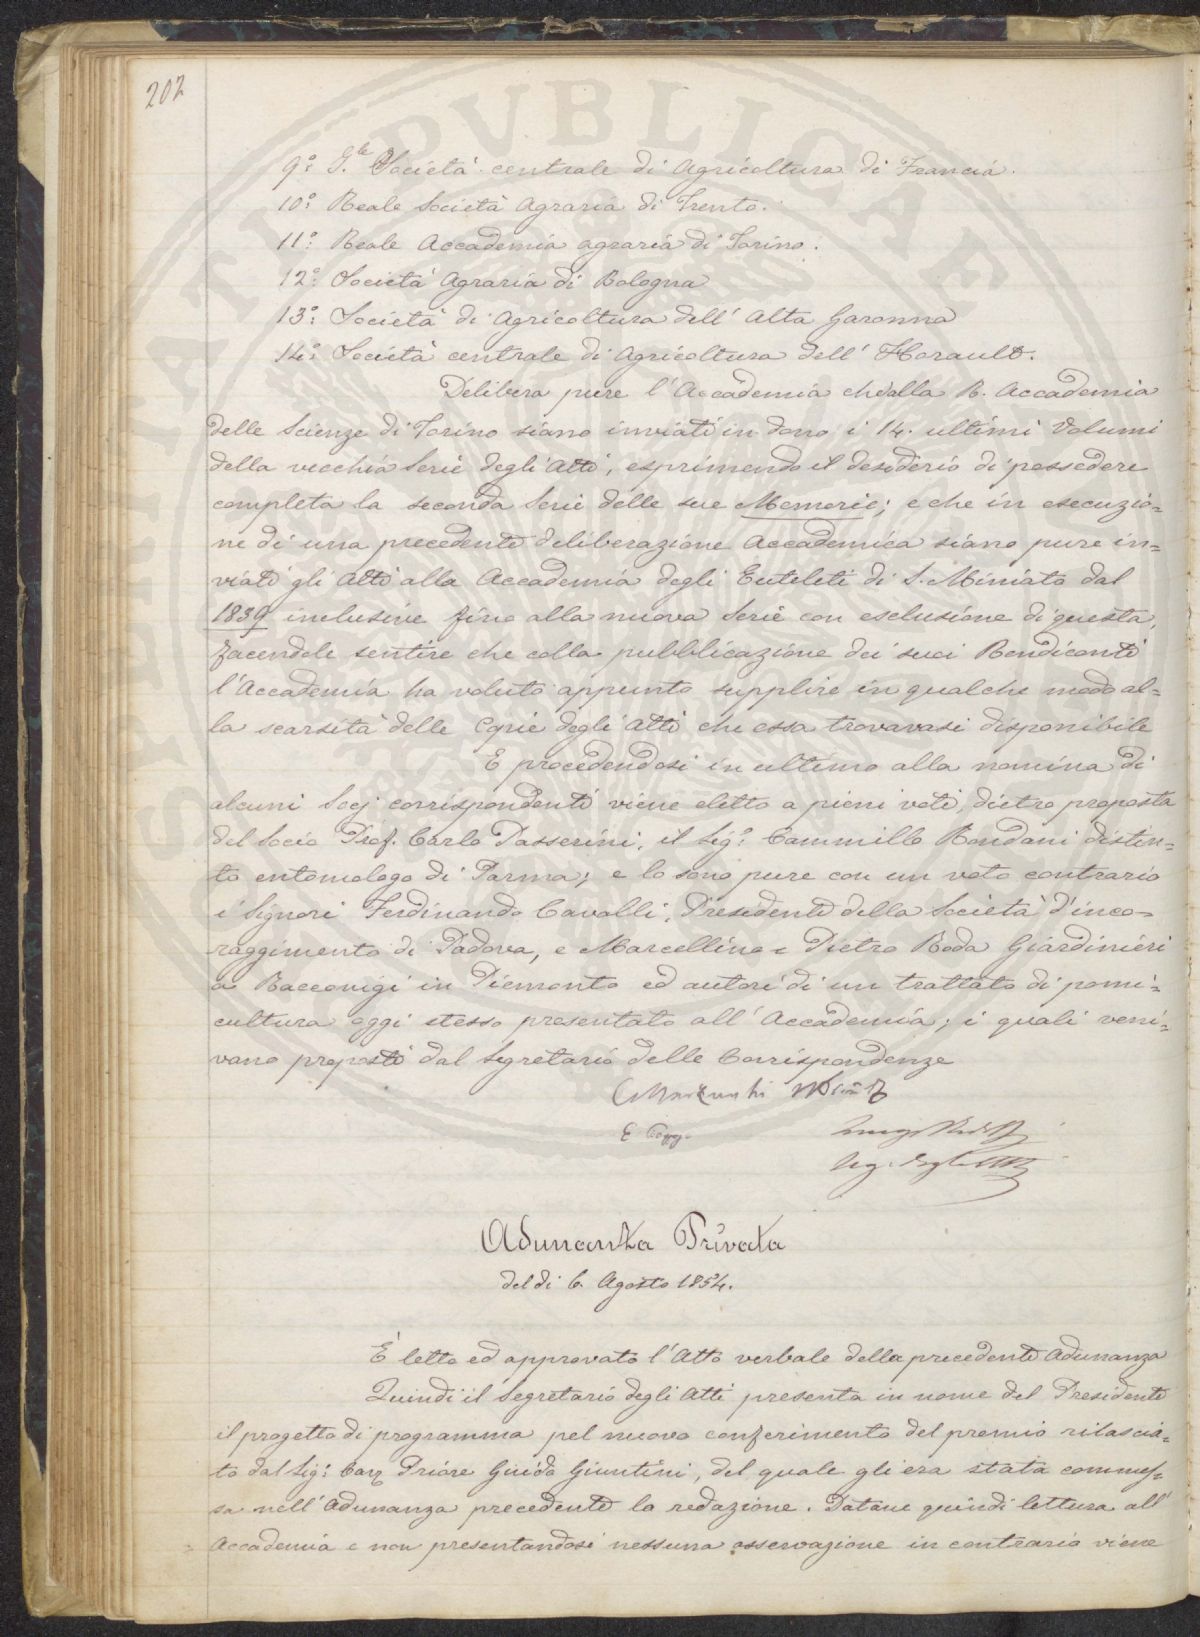 202
9.° I.le Società centrale di Agricoltura di Francia.
10.° Reale Società Agraria di Trento.
11.° Reale Accademia agraria di Torino.
12.° Società Agraria di Bologna
13.° Società di Agricoltura dell' Alta Garonna
14.° Società centrale di Agricoltura dell' Herault.
Delibera pure l'Accademia che dalla R. Accademia
delle Scienze di Torino siano inviati in dono i 14. ultimi Volumi
della vecchia Serie degli Atti, esprimendo il desiderio di possedere
completa la seconda Serie delle sue Memorie; e che in esecuzio=
ne di una precedente deliberazione Accademica siano pure in=
viati gli Atti alla Accademia degli Euteleti di S. Miniato dal
1839 inclusive fino alla nuova Serie con esclusione di questa,
facendole sentire che colla pubblicazione dei suoi Rendiconti
l'Accademia ha voluto appunto supplire in qualche modo al=
la scarsità delle Copie degli Atti che essa trovavasi disponibile
E procedendosi in ultimo alla nomina di
alcuni Socj corrispondenti viene eletto a pieni voti, dietro proposta
del Socio Prof. Carlo Passerini, il Sig.r Cammillo Rondani distin=
to entomologo di Parma; e lo sono pure con un voto contrario
i Signori Ferdinando Cavalli, Presidente della Società d'inco=
raggimento di Padova, e Marcellino e Pietro Roda Giardinieri
a Racconigi in Piemonte ed autori di un trattato di pomi=
cultura oggi stesso presentato all' Accademia; i quali veni=
vano proposti dal Segretario delle Corrispondenze
E Poggi
Adunanza Privata
del dì 6. Agosto 1854.
È letto ed approvato l'Atto verbale della precedente Adunanza
Quindi il Segretario degli Atti presenta in nome del Presidente
il progetto di programma pel nuovo conferimento del premio rilascia=
to dal Sig.r Priore Guido Giuntini, del quale gli era stata commes=
sa nell'Adunanza precedente la redazione. Datane quindi lettura all'
Accademia e non presentandosi nessuna osservazione in contrario viene
CIVITATI PVBLICAE